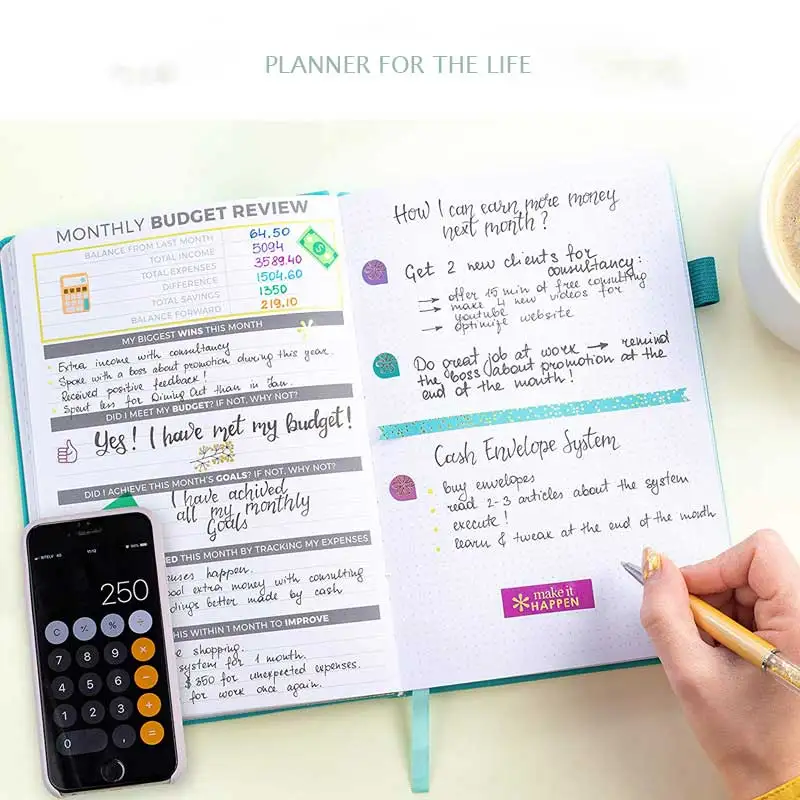 PLANNER FOR THE LIFE
MONTHLY BUDGET REVIEW
BALANCE FROM LAST MONTH 64.50
TOTAL INCOME 5094
TOTAL EXPENSES 3589.40
DIFFERENCE 1504.60
TOTAL SAVINGS 1350
BALANCE FORWARD 219.10
MY BIGGEST WINS THIS MONTH
Extra income with consultancy
Spoke with a boss about promotion during this year.
Received positive feedback!
Spent less for Dining Out than in Jan.
DID I MEET MY BUDGET? IF NOT, WHY NOT?
Yes! I have met my budget!
DID I ACHIEVE THIS MONTH'S GOALS? IF NOT, WHY NOT?
I have achived
all my monthly
Goals
THIS MONTH BY TRACKING MY EXPENSES
happen.
extra money with consulting
better made by cash
THIS WITHIN 1 MONTH TO IMPROVE
shopping.
system for 1 month.
$350 for unexpected expenses.
for work once again.
How I can earn more money
next month?
Get 2 new clients for
consultancy:
→ offer 15 min of free consulting
→ make 4 new videos for
youtube
→ optimize website
Do great job at work → remind
the boss about promotion at the
end of the month!
Cash Envelope System
buy envelopes
read 2-3 articles about the system
execute!
learn & tweak at the end of the month
make it
HAPPEN
11:12
250
C % ÷
7 8 9 ×
4 5 6 −
1 2 3 +
0 . =